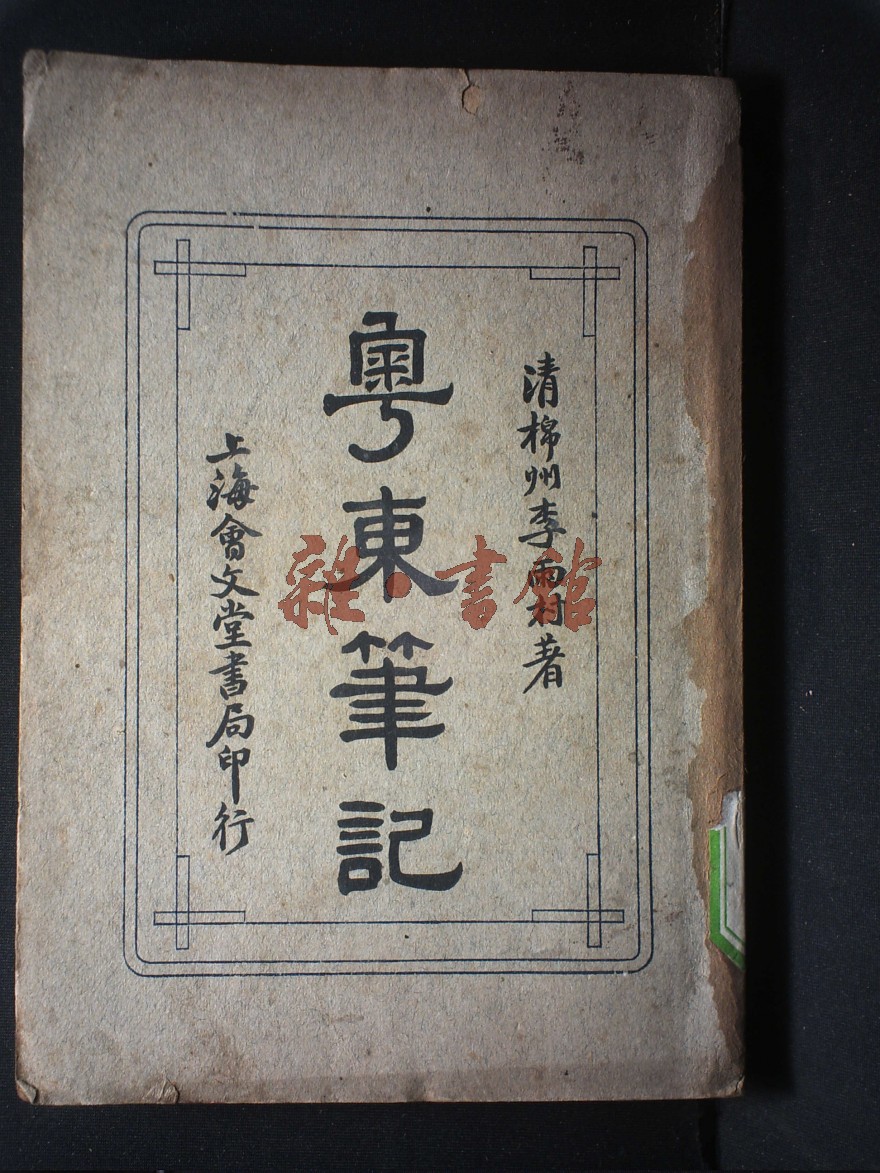 清棉州李雨村著
粵東筆記
上海會文堂書局印行
雜·書館